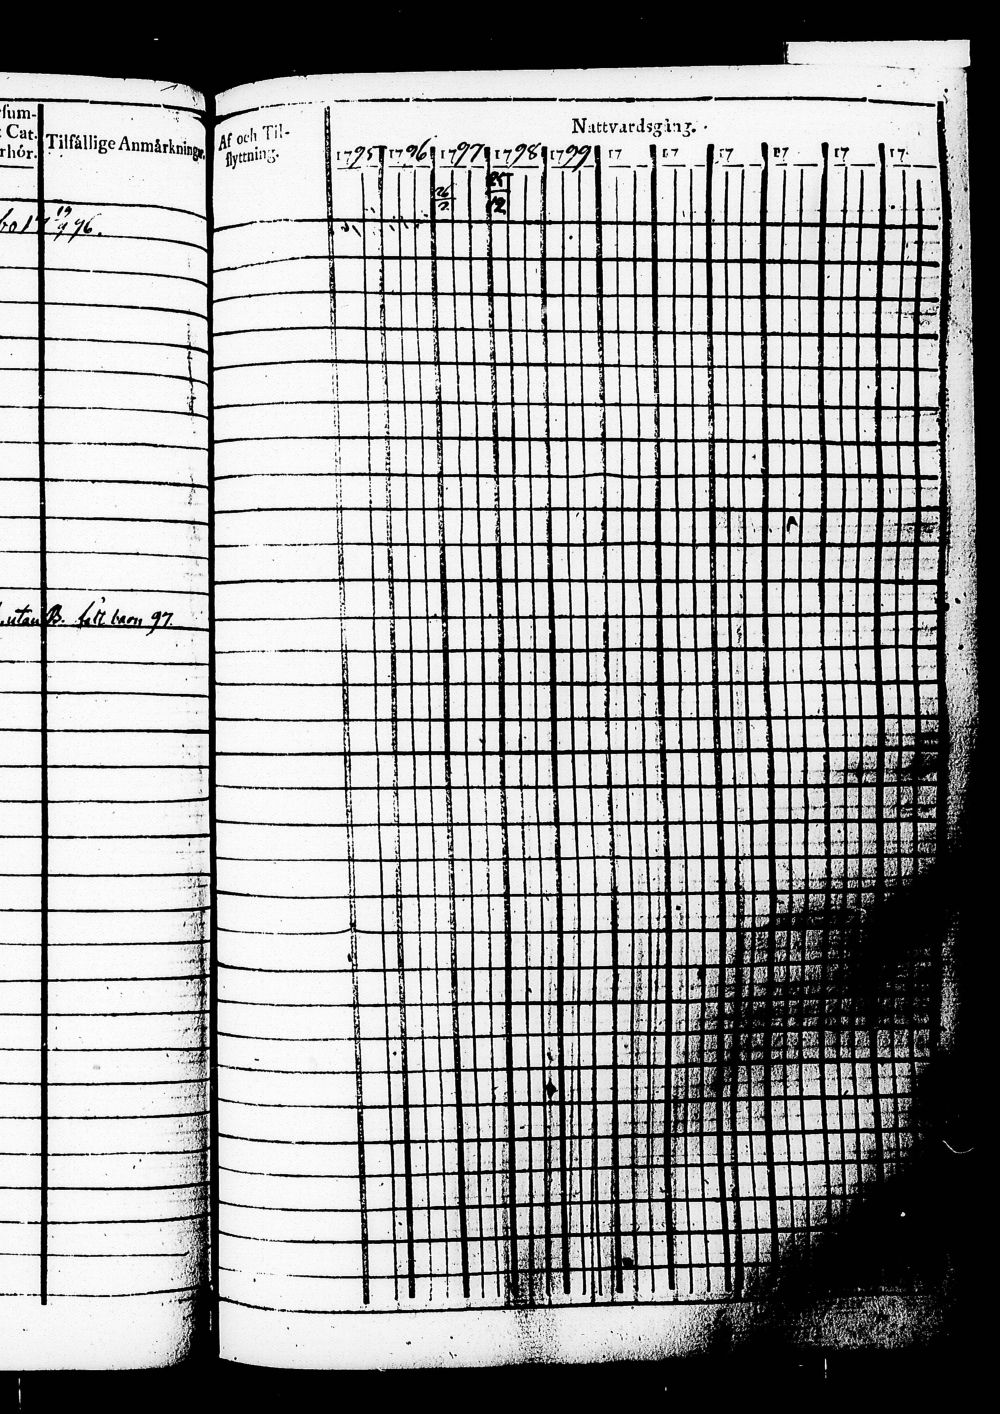 rsum-
Cat.
rhör.
Tilfällige Anmärkningar.
bo 17 19/9 96.
utan B. fått barn 97.
Af och Til-
flyttning.
Nattvardsgång.
1795 1796 1797 1798 1799 17 17 17 17 17 17
26/2 25/12